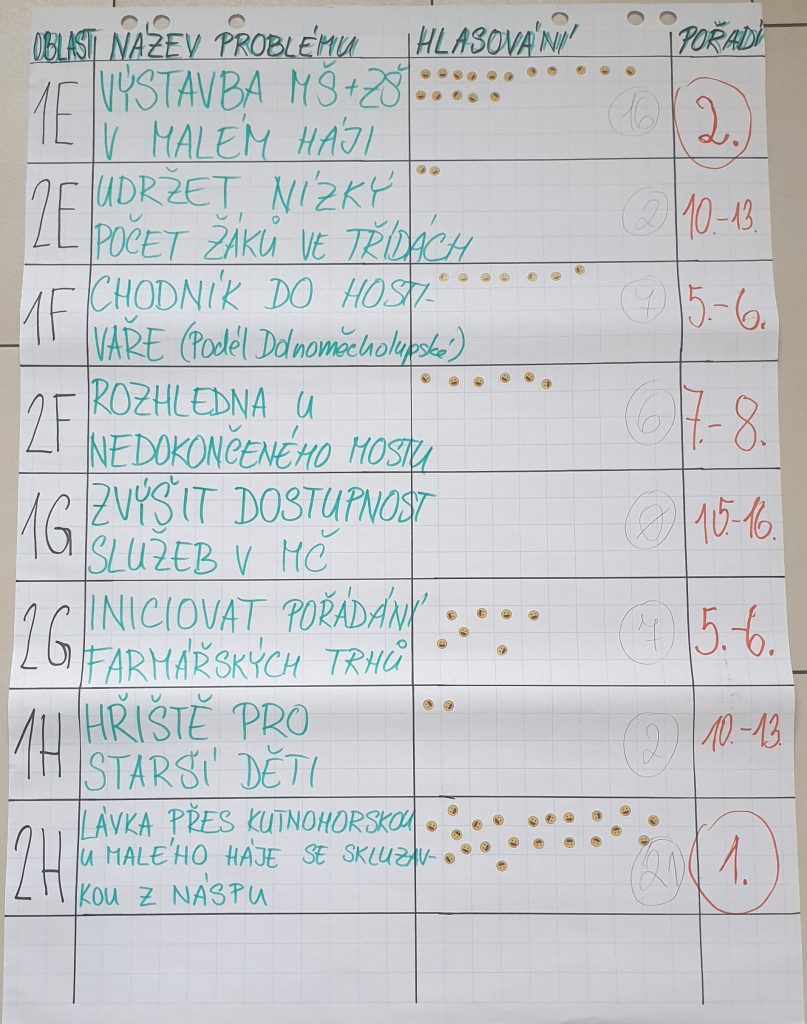 OBLAST NÁZEV PROBLÉMU HLASOVÁNÍ POŘADÍ
1E VÝSTAVBA MŠ+ZŠ
V MALÉM HÁJI 16 2.
2E UDRŽET NÍZKÝ
POČET ŽÁKŮ VE TŘÍDÁCH 2 10.-13.
1F CHODNÍK DO HOSTI-
VAŘE (Podél Dolnoměcholupské) 7 5.-6.
2F ROZHLEDNA U
NEDOKONČENÉHO MOSTU 6 7.-8.
1G ZVÝŠIT DOSTUPNOST
SLUŽEB V MČ 0 15.-16.
2G INICIOVAT POŘÁDÁNÍ
FARMÁŘSKÝCH TRHŮ 7 5.-6.
1H HŘIŠTĚ PRO
STARŠÍ DĚTI 2 10.-13.
2H LÁVKA PŘES KUTNOHORSKOU
U MALÉHO HÁJE SE SKLUZAV-
KOU Z NÁSPU 21 1.